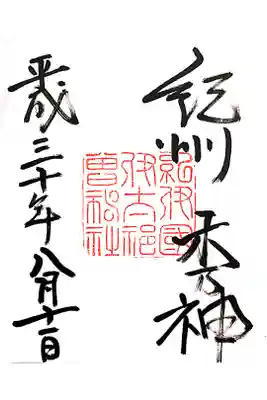 紀州
木乃神
紀伊國
伊太祁
曽神社
平成三十年八月十一日